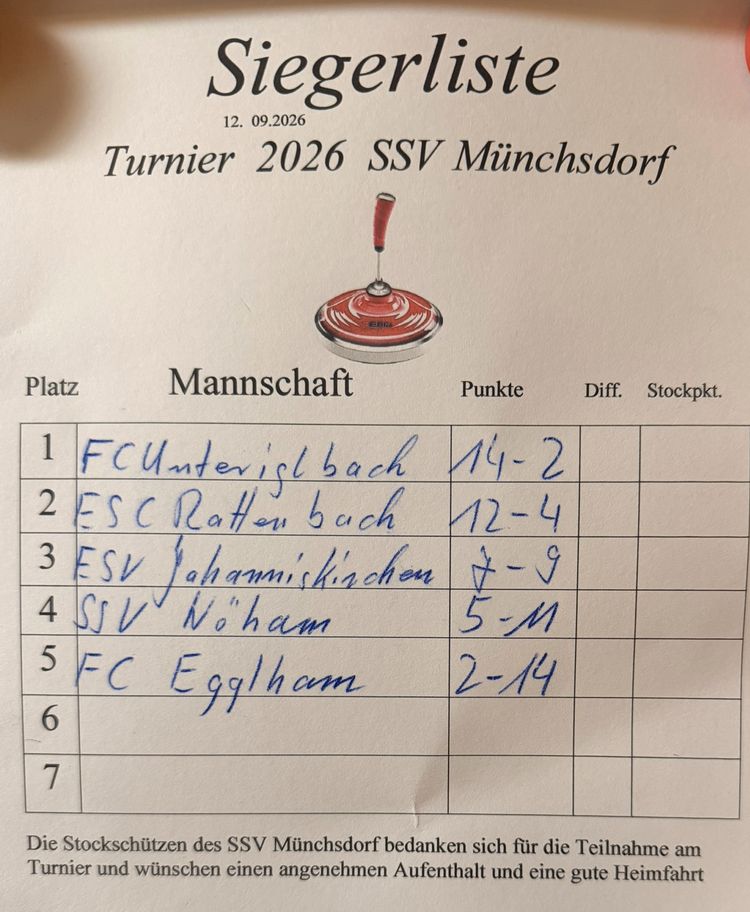 Siegerliste
12. 09.2026
Turnier 2026 SSV Münchsdorf
Platz Mannschaft Punkte Diff. Stockpkt.
1 FC Unteriglbach 14-2
2 ESC Rattenbach 12-4
3 ESV Johanniskirchen 7-9
4 SSV Nöham 5-11
5 FC Egglham 2-14
6
7
Die Stockschützen des SSV Münchsdorf bedanken sich für die Teilnahme am
Turnier und wünschen einen angenehmen Aufenthalt und eine gute Heimfahrt